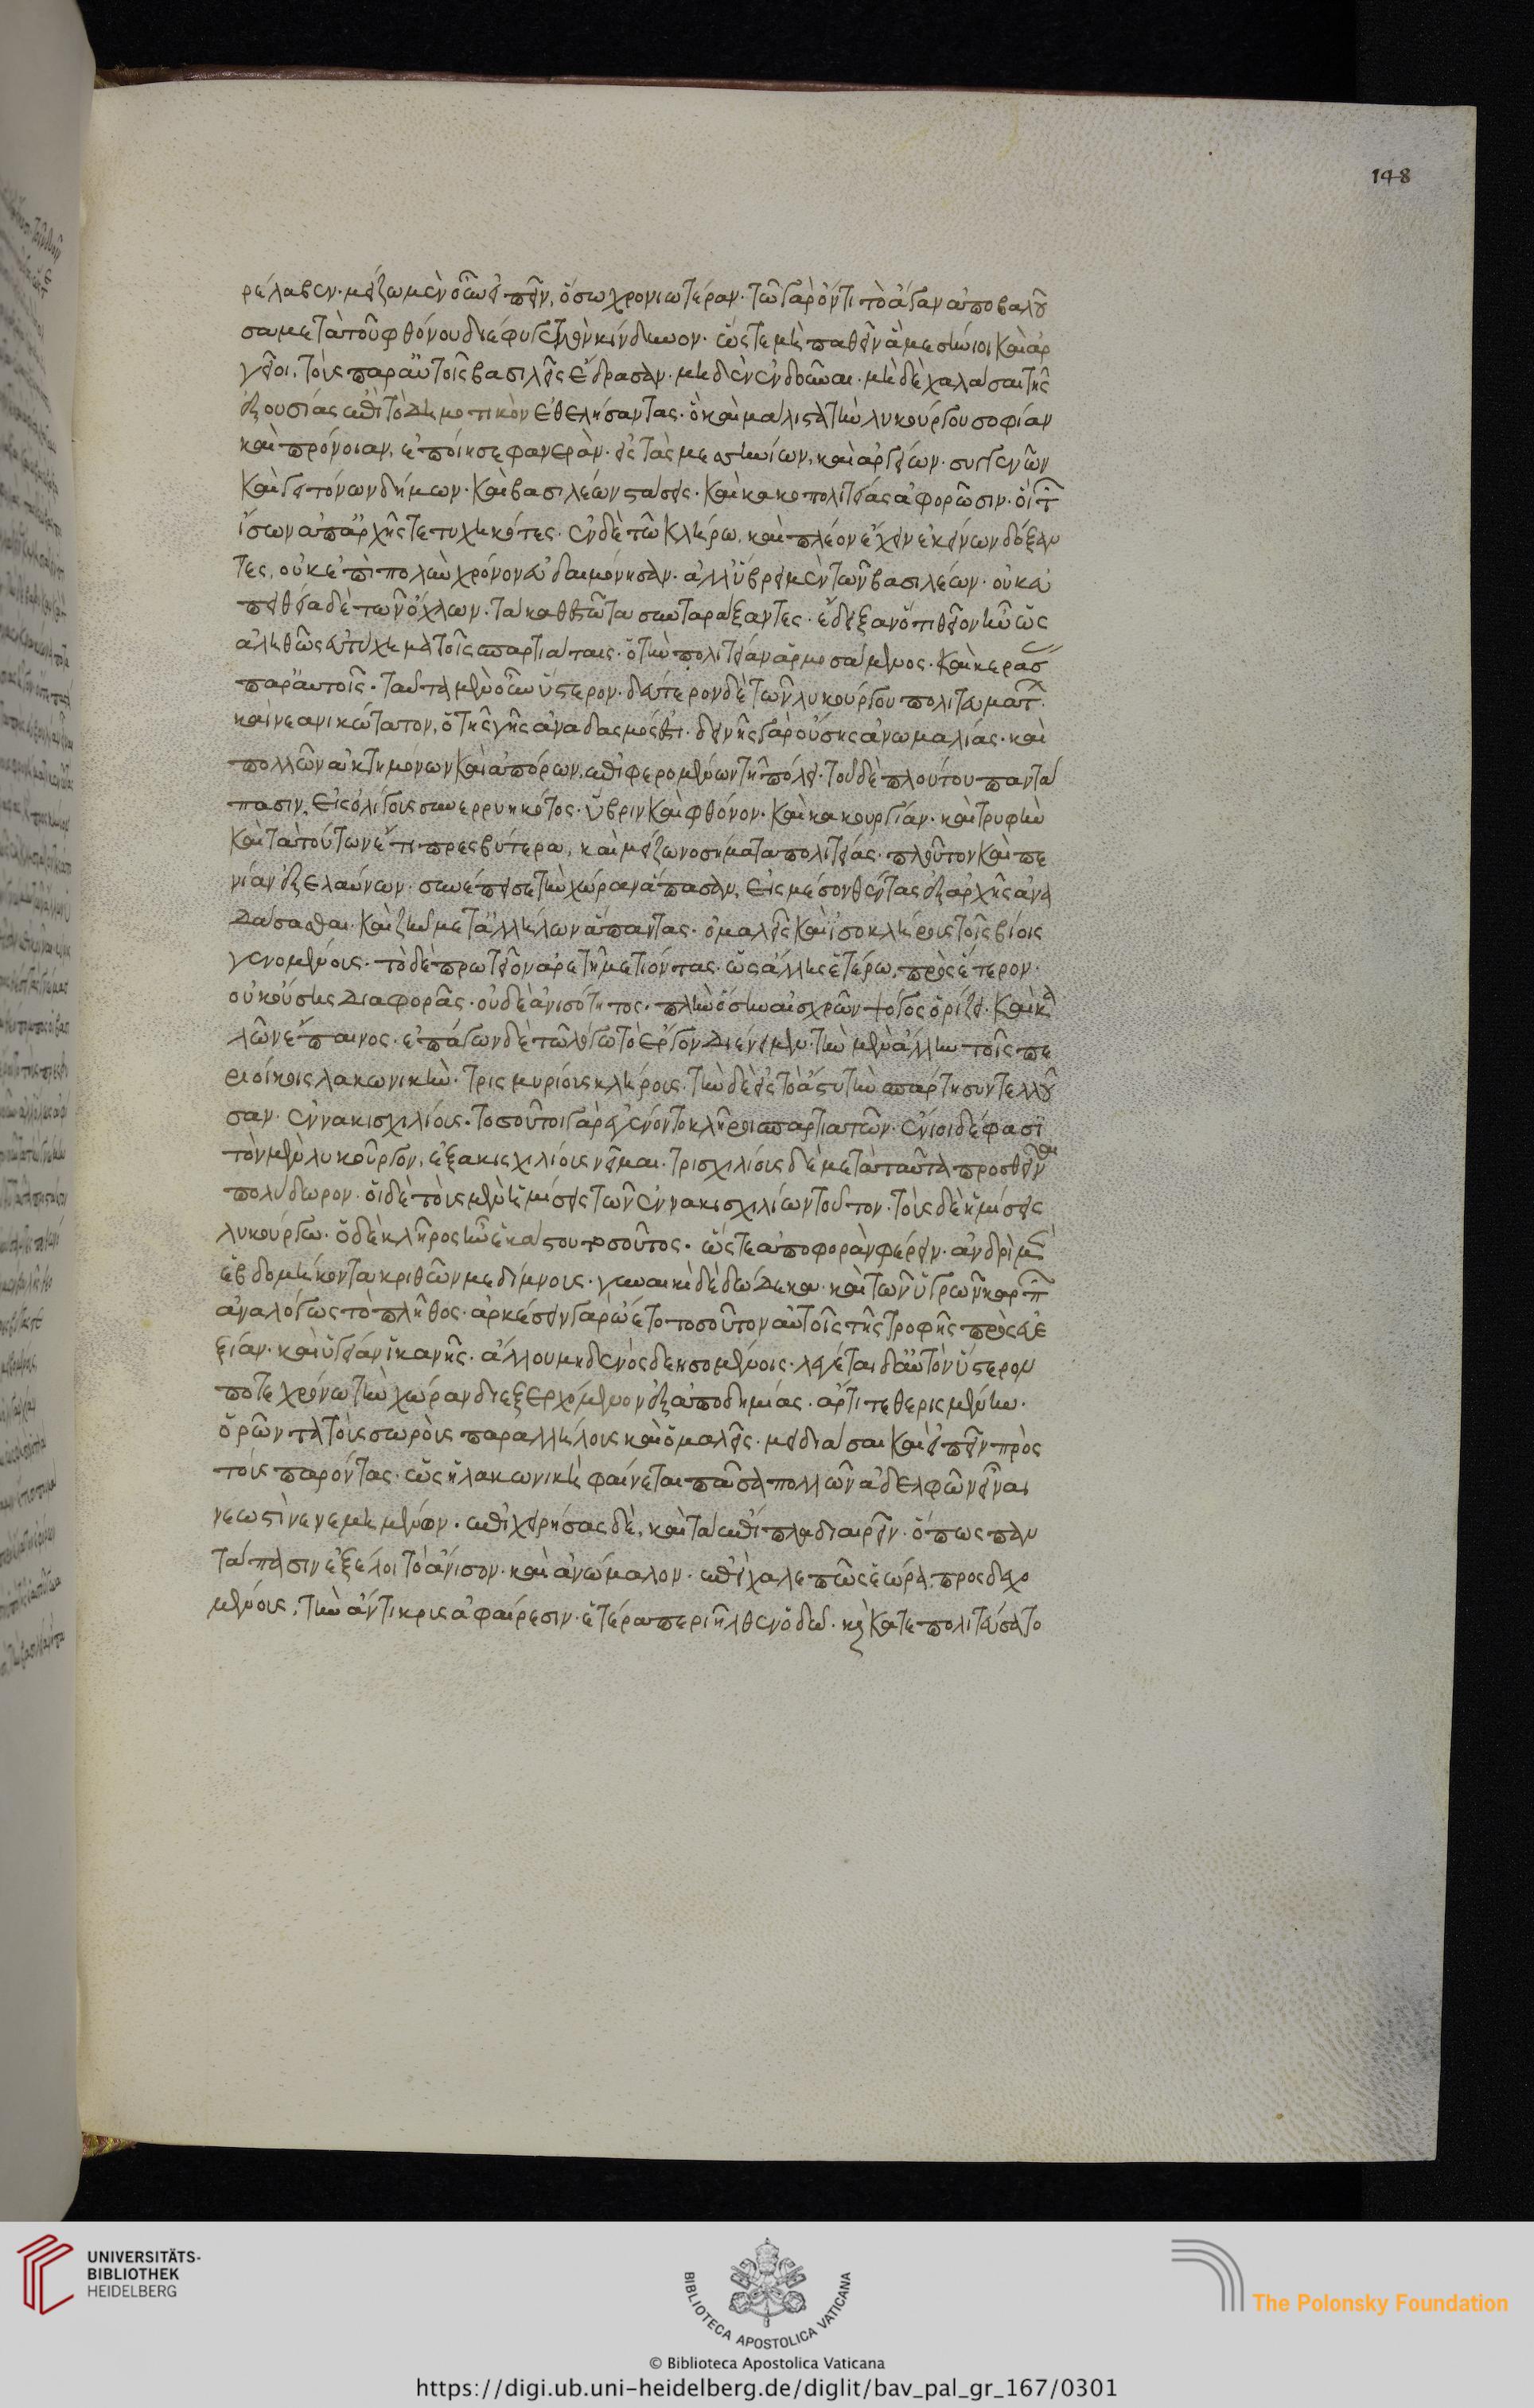 148
ρέλαβεν· μείζω μὲν οὖν εἰπεῖν, ὅσω χρονιωτέραν· τῶ γὰρ ὄντι τὸ ἄγαν ἀποβαλοῦ
σα μετὰ τοῦ φθόνου διέφυγε τὸν κίνδυνον· ὥστε μὴ παθεῖν ἃ μεσήνιοι καὶ ἀρ
γεῖοι, τοὺς παρ' αὐτοῖς βασιλεῖς ἔδρασαν· μηδὲν ἐνδοῦναι· μὴ δὲ χαλάσαι τῆς
ἐξουσίας ἐπὶ τὸ δημοτικὸν ἐθελήσαντας· ὃ καὶ μάλιστα τὴν λυκούργου σοφίαν
καὶ πρόνοιαν, ἐποίησε φανερὰν· εἰς τὰς μεσηνίων, καὶ ἀργείων· συγγενῶν
καὶ γειτόνων δήμων· καὶ βασιλέων στάσεις· καὶ κακοπολιτείας ἀφορῶσιν· οἳ τ
ἴσων ἀπ' ἀρχῆς τετυχηκότες· ἐν δὲ τῶ κλήρω, καὶ πλέον ἔχειν ἐκείνων δόξαν
τες, οὐκ ἐπὶ πολὺν χρόνον εὐδαιμόνησαν· ἀλλ' ὕβρει μὲν τῶν βασιλέων· οὐκ εὐ
πειθεία δὲ τῶν ὄχλων· τὰ καθεστῶτα συνταράξαντες· ἔδειξαν ὅτι θεῖον ἦν ὡς
ἀληθῶς εὐτύχημα τοῖς σπαρτιάταις· ὁ τὴν πολιτείαν ἁρμοσάμενος· καὶ κερασ
παρ' αὐτοῖς· ταῦτα μὲν οὖν ὕστερον· δεύτερον δὲ τῶν λυκούργου πολιτευμάτ·
καὶ νεανικώτατον, ὁ τῆς γῆς ἀναδασμός ἐστι· δεινῆς γὰρ οὔσης ἀνωμαλίας· καὶ
πολλῶν ἀκτημόνων καὶ ἀπόρων, ἐπιφερομένων τῆ πόλει· τοῦ δὲ πλούτου παντά
πασιν, εἰς ὀλίγους συνερρυηκότος· ὕβριν καὶ φθόνον· καὶ κακουργίαν· καὶ τρυφὴν
καὶ τὰ τούτων ἔτι πρεσβύτερα, καὶ μείζω νοσήματα πολιτείας· πλοῦτον καὶ πε
νίαν ἐξελαύνων· συνέπεισε τὴν χώραν ἅπασαν, εἰς μέσον θέντας ἐξ ἀρχῆς ἀνα
δάσασθαι· καὶ ζῆν μετ' ἀλλήλων ἅπαντας· ὁμαλεῖς καὶ ἰσοκλήρους τοῖς βίοις
γενομένους· τὸ δὲ πρωτεῖον ἀρετῆ μετιόντας· ὡς ἄλλης ἑτέρω, πρὸς ἕτερον·
οὐκ οὔσης διαφορᾶς· οὐδὲ ἀνισότητος· πλὴν ὅσην αἰσχρῶν ψόγος ὁρίζει· καὶ κα
λῶν ἔπαινος· ἐπάγων δὲ τῶ λόγω τὸ ἔργον διένειμεν· τὴν μὲν ἄλλην τοῖς πε
ριοίκοις λακωνικὴν· τρισμυρίους κλήρους· τὴν δὲ εἰς τὸ ἄστυ τὴν σπάρτην συντελοῦ
σαν· ἐννακισχιλίους· τοσοῦτοι γὰρ ἐγένοντο κλῆροι σπαρτιατῶν· ἔνιοι δέ φασι
τὸν μὲν λυκοῦργον, ἑξακισχιλίους νεῖμαι· τρισχιλίους δὲ μετὰ ταῦτα προσθεῖναι
πολύδωρον· οἱ δὲ τοὺς μὲν ἡμίσεις τῶν ἐννακισχιλίων τοῦτον· τοὺς δὲ ἡμίσεις
λυκούργω· ὁ δὲ κλῆρος ἦν ἑκάστου τοσοῦτος· ὥστε ἀποφορὰν φέρειν· ἀνδρὶ μὲν
ἑβδομήκοντα κριθῶν μεδίμνους· γυναικὶ δὲ δώδεκα· καὶ τῶν ὑγρῶν καρπ
ἀναλόγως τὸ πλῆθος· ἀρκέσειν γὰρ ὤετο τοσοῦτον αὐτοῖς τῆς τροφῆς πρὸς εὐε
ξίαν· καὶ ὑγείαν ἱκανῆς· ἄλλου μηδενὸς δεησομένοις· λέγεται δ' αὐτὸν ὕστερον
ποτὲ χρόνω τὴν χώραν διεξερχόμενον ἐξ ἀποδημίας· ἄρτι τεθερισμένην·
ὁρῶντα τοὺς σωροὺς παραλλήλους καὶ ὁμαλεῖς· μειδιάσαι καὶ εἰπεῖν πρὸς
τοὺς παρόντας· ὡς ἡ λακωνικὴ φαίνεται πᾶσα πολλῶν ἀδελφῶν εἶναι
νεωστὶ νενεμημένων· ἐπιχειρήσας δὲ, καὶ τὰ ἔπιπλα διαιρεῖν· ὅπως παν
τάπασιν ἐξέλοι τὸ ἄνισον· καὶ ἀνώμαλον· ἐπεὶ χαλεπῶς ἑώρα, προσδεχο
μένους, τὴν ἄντικρις ἀφαίρεσιν· ἑτέρα περιῆλθεν ὁδῶ· καὶ κατεπολιτεύσατο
UNIVERSITÄTS-
BIBLIOTHEK
HEIDELBERG
BIBLIOTECA APOSTOLICA VATICANA
The Polonsky Foundation
© Biblioteca Apostolica Vaticana
https://digi.ub.uni-heidelberg.de/diglit/bav_pal_gr_167/0301